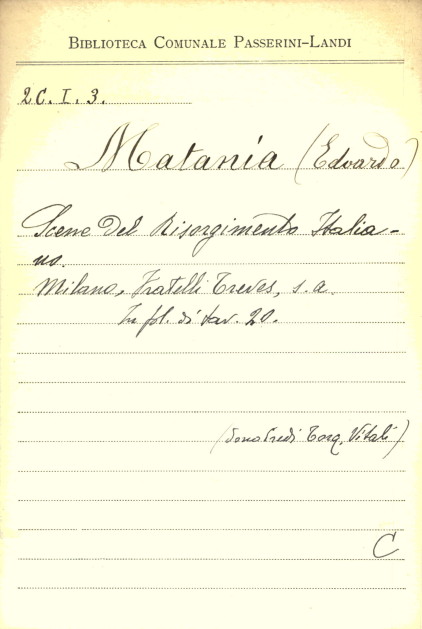 BIBLIOTECA COMUNALE PASSERINI-LANDI
2C. I. 3.
Matania (Edoardo)
Scene del Risorgimento Italia-
no.
Milano, Fratelli Treves, s. a.
In fol. di tav. 20.
(dono Eredi Torq. Vitali)
C